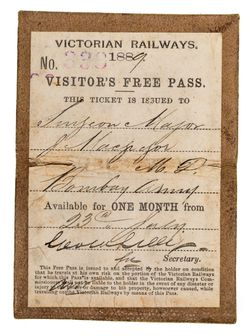 VICTORIAN RAILWAYS.
No. 333 1889.
VISITOR'S FREE PASS.
THIS TICKET IS ISSUED TO
Surgeon Major
M.D
Bombay Army
Available for ONE MONTH from
23rd July
Secretary.
This Free Pass is issued to and accepted by the holder on condition
that he travels at his own risk on the portion of the Victorian Railways
for which this Pass is available, and that the Victorian Railways Com-
missioners shall not be liable to the holder in the event of any disaster or
injury or damage to his property, however caused, while
travelling on the Victorian Railways by means of this Pass.